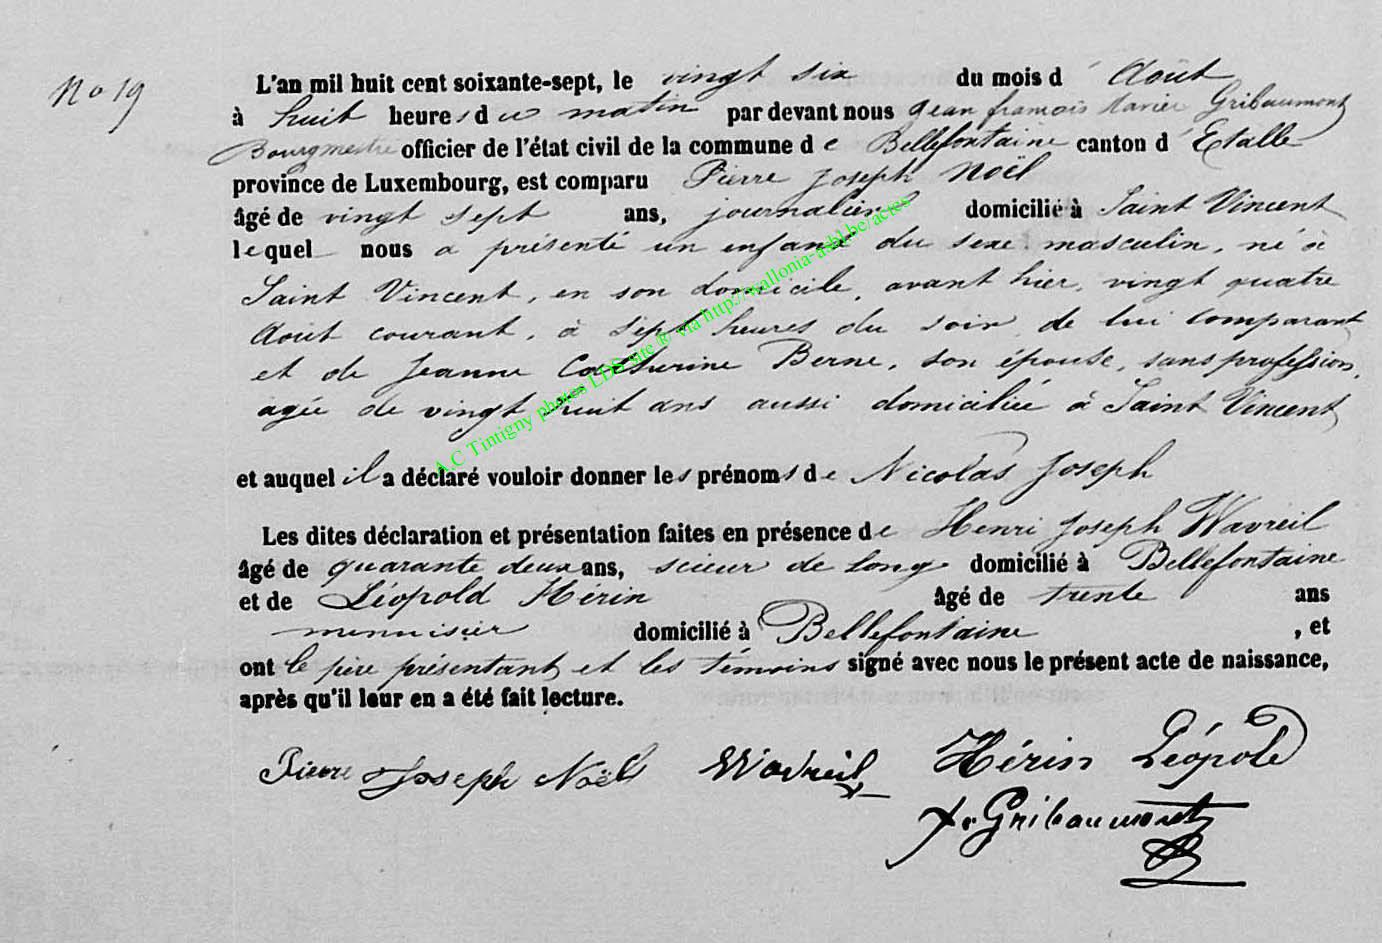 No 19
L'an mil huit cent soixante-sept, le vingt six du mois d' Août
à huit heures du matin par devant nous Jean françois Xavier Gribaumont
Bourgmestre officier de l'état civil de la commune de Bellefontaine canton d' Etalle
province de Luxembourg, est comparu Pierre Joseph Noël
âgé de vingt sept ans, journalier domicilié à Saint Vincent
lequel nous a présenté un enfant du sexe masculin, né à
Saint Vincent, en son domicile, avant hier, vingt quatre
Août courant, à sept heures du soir, de lui comparant
et de Jeanne Catherine Berne, son épouse, sans profession,
agée de vingt huit ans aussi domiciliée à Saint Vincent
et auquel il a déclaré vouloir donner les prénoms de Nicolas Joseph
Les dites déclaration et présentation faites en présence de Henri Joseph Wavreil
âgé de quarante deux ans, scieur de long domicilié à Bellefontaine
et de Léopold Hérin âgé de trente ans
menuisier domicilié à Bellefontaine , et
ont le père présentant et les témoins signé avec nous le présent acte de naissance,
après qu'il leur en a été fait lecture.
Pierre Joseph Noël Wavreil Hérin Léopold
Gribaumont
A.C Tintigny photos LDS site ® via http://wallonia-asbl.be/actes